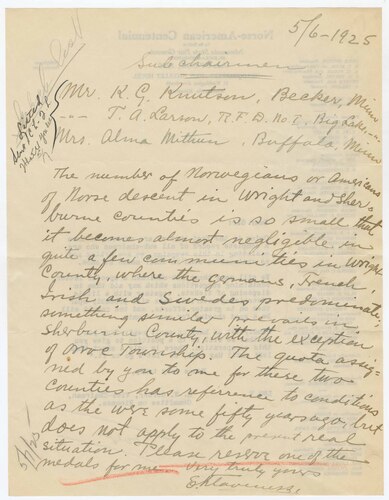 5/6-1925
Subchairmen
Mr. K. G. Knutson, Becker, Minn
--- T. A. Larson, R.F.D. No. 2, Big Lake, ---
Mrs. Alma Mithun, Buffalo, Minn
The number of Norwegians or Americans
of Norse descent in Wright and Sher-
burne counties is so small that
it becomes almost negligible in
quite a few communities in Wright
County, where the germans, French,
Irish and Swedes predominate,
something similar prevails in
Sherburne County, with the exception
of Orroc Township. The quota assig-
ned by you to me for these two
Counties has reference to conditions
as the were some fifty years ago, but
does not apply to the present real
situation. Please reserve one of the
medals for me. Very truly yours